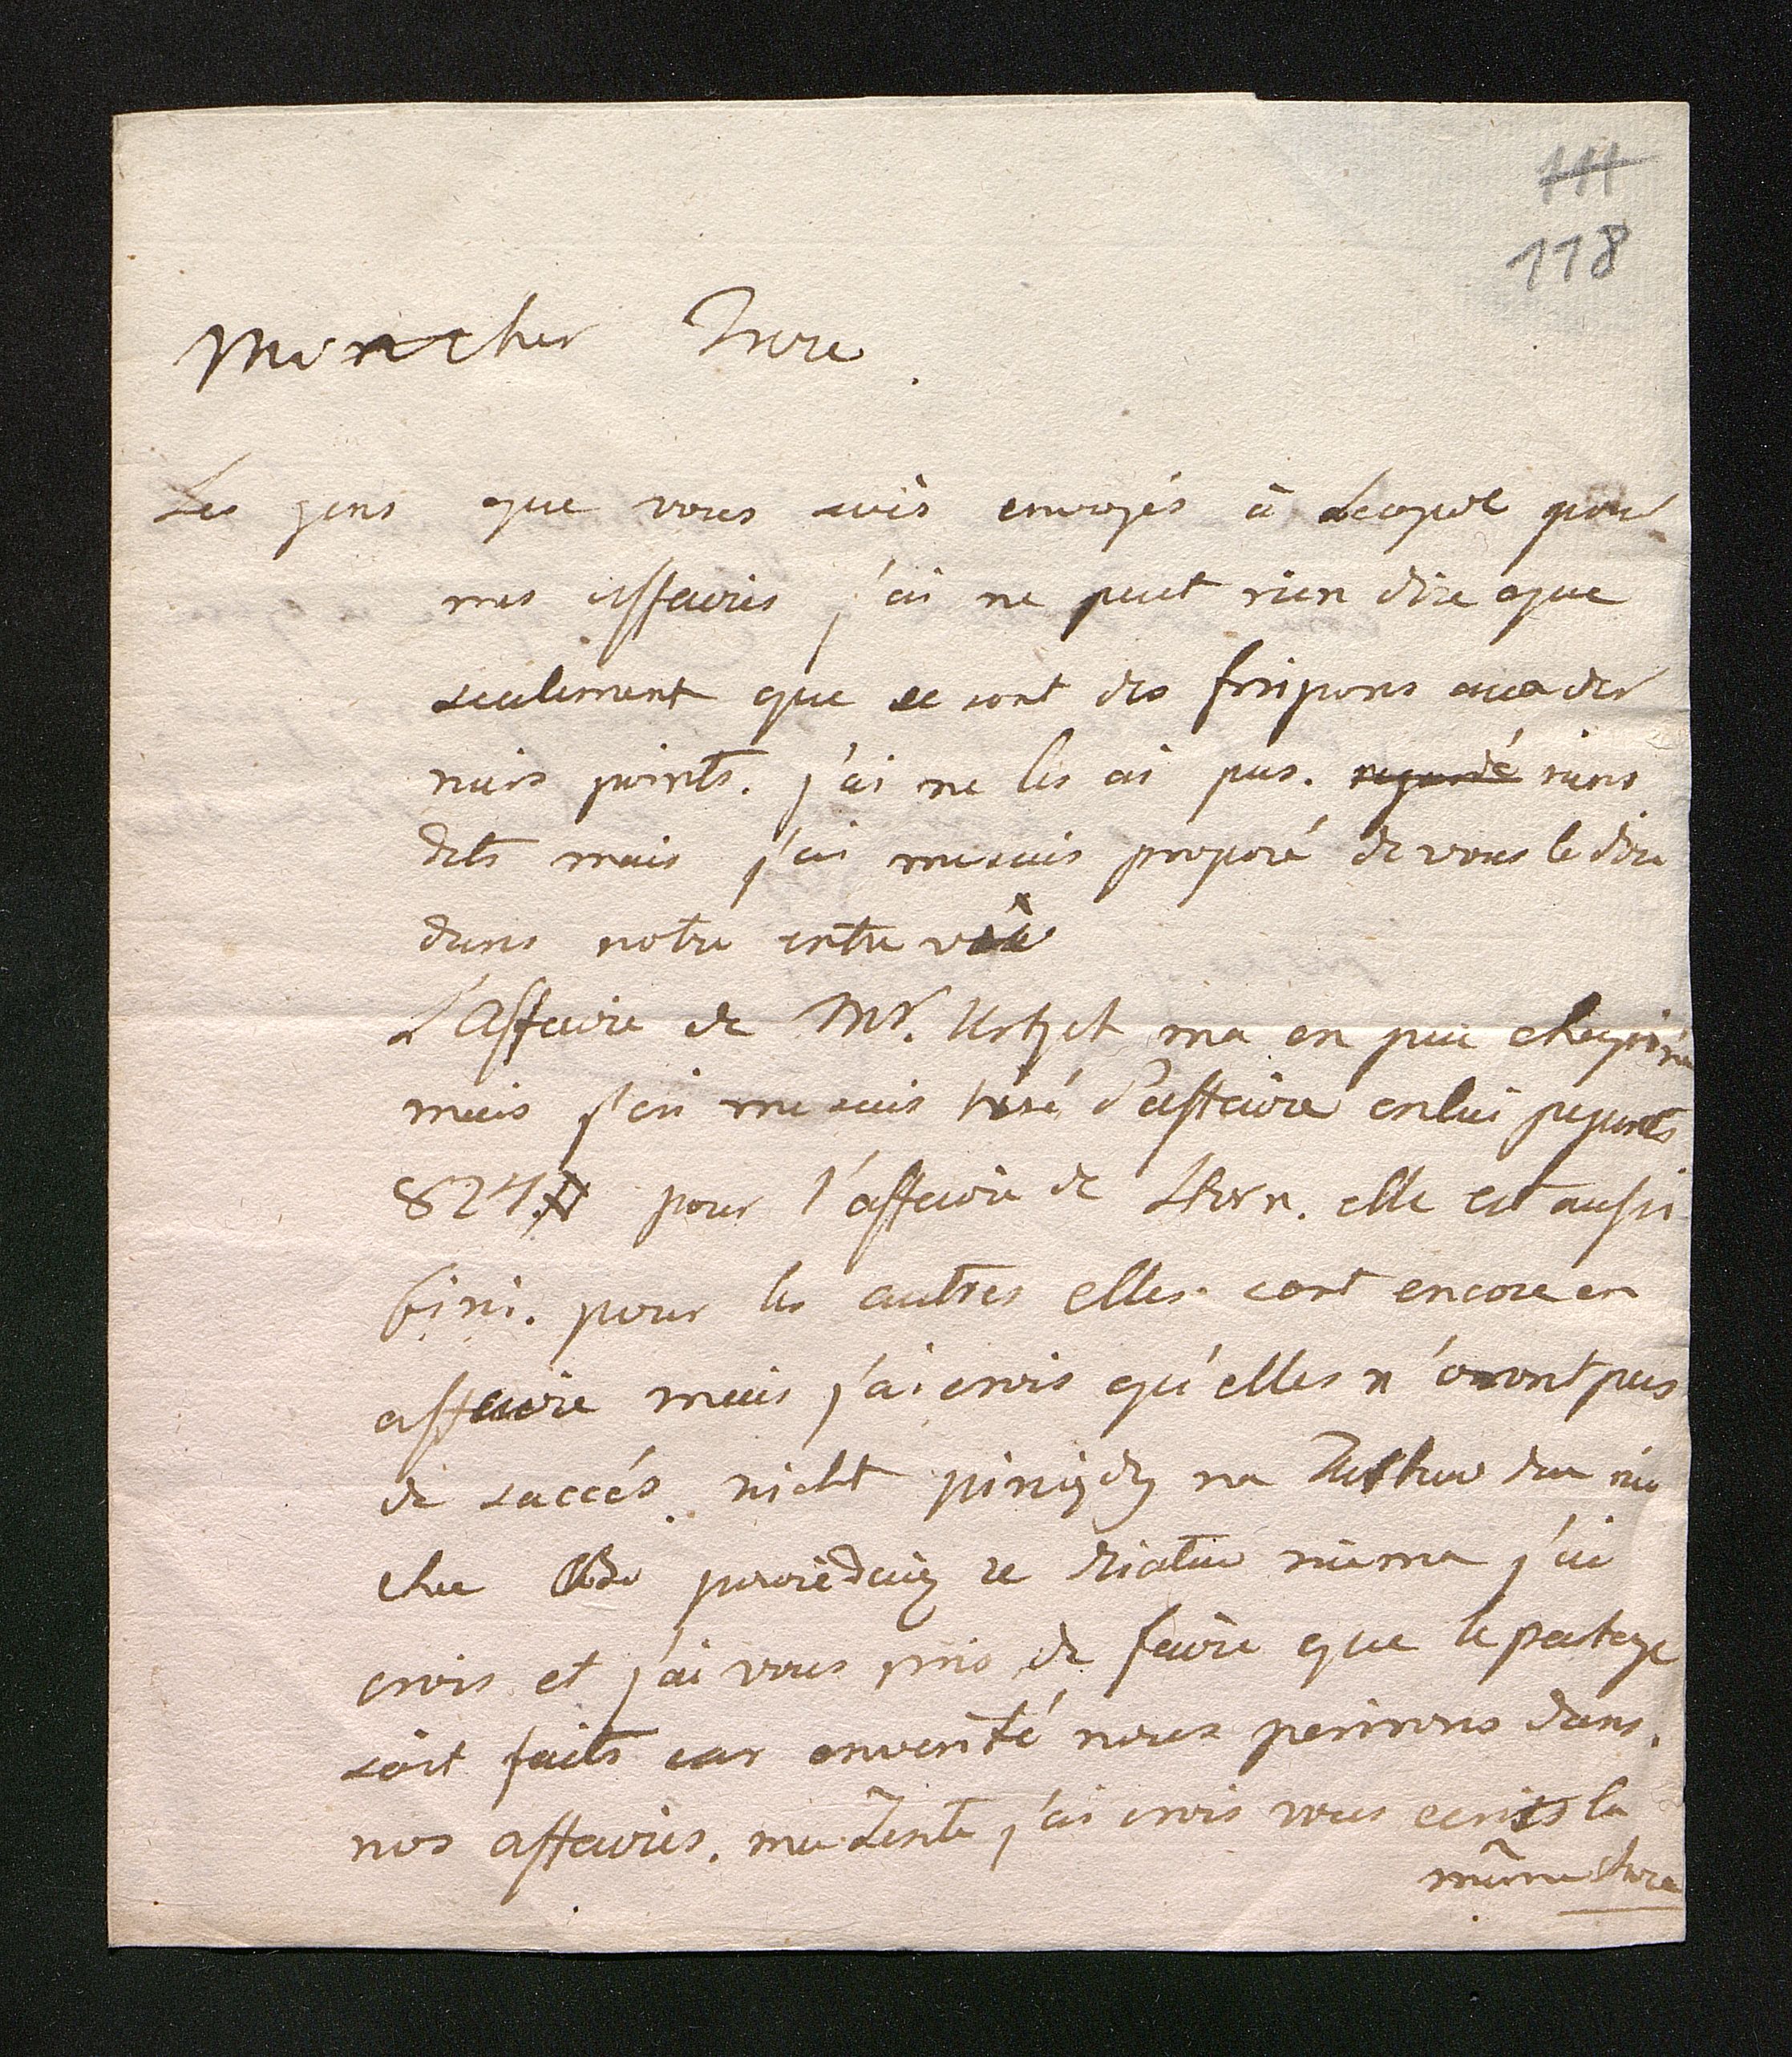 111
118
Mon cher Frere
Les gens que vous avès envoyés à Leopol pour
mes affaires j'ai ne peut rien dire que
seulement que se sont des fripons avec der
niers points. j'ai ne les ai pas. regardé riens
dits mais j'ai me suis proposé de vous le dire
dans notre entre vüe
L'affaire de Mr. ma en peu chagriné
mais j'ai me suis tiré d'affaire enlui payants
824 # pour l'affaire de Stern. elle est aussi
fini. pour les autres elles sont encore en
affaire mais j'ai crois qu'elles n'oront pas
de saccés. nicht piniędzy na
chce powiedzieć ze niema j'ai
crois et j'ai vous pris de faire que le partage
soit faits car enverité nous perirons dans
nos affaires. j'ai crois vous ecrits la
même